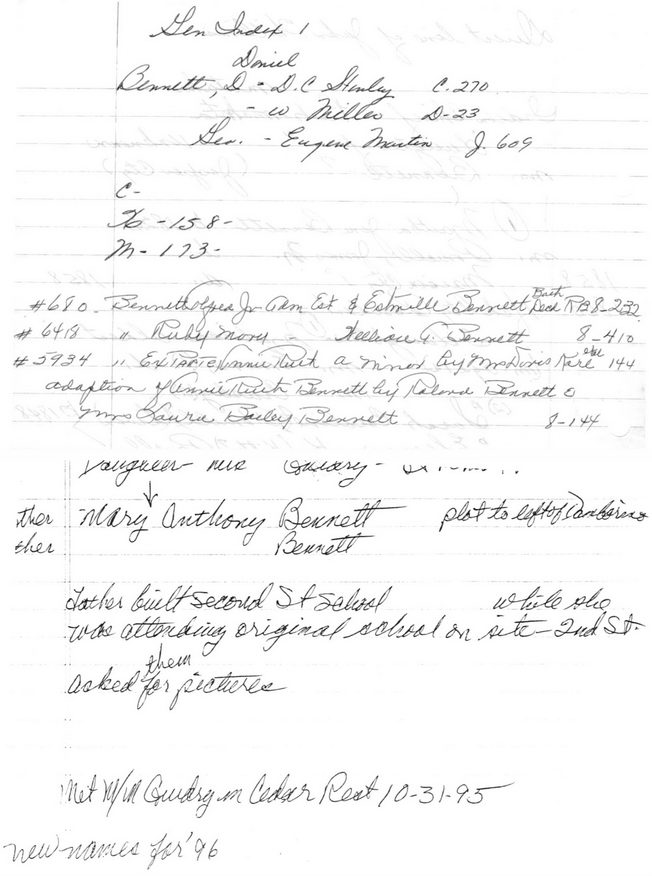 Gen Index 1
Daniel
Bennett, D - D.C Stenley C. 270
- w Miller D-23
Geo. - Eugene Martin J. 609
C-
-158-
M-173-
#680. Bennett Jr Adm Est & Estmille Bennett Deed 8-232
#6418 " Ruby - Bennett 8-410
#5934 " Ex Parte Annie Ruth a minor by Mrs Doris 144
adaption of Annie Ruth Bennett by Roland Bennett &
Mrs Laura Bailey Bennett 8-144
Daughter Mrs Guidry -
ther Mary Anthony Bennett plot to left of
ther Bennett
Father built Second St School while she
was attending original school on site - 2nd St.
them
asked for pictures
Met M/M Guidry in Cedar Rest 10-31-95
new names for '96